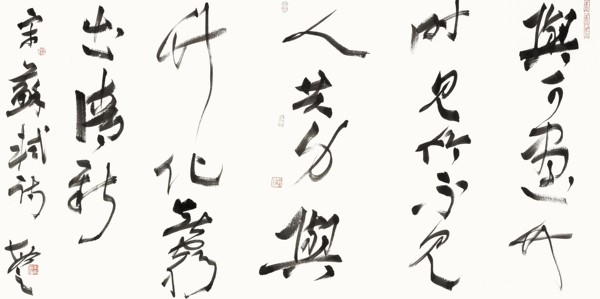 與可畫竹
時見竹不見
人其身與
竹化無窮
出清新
宋蘇軾詩